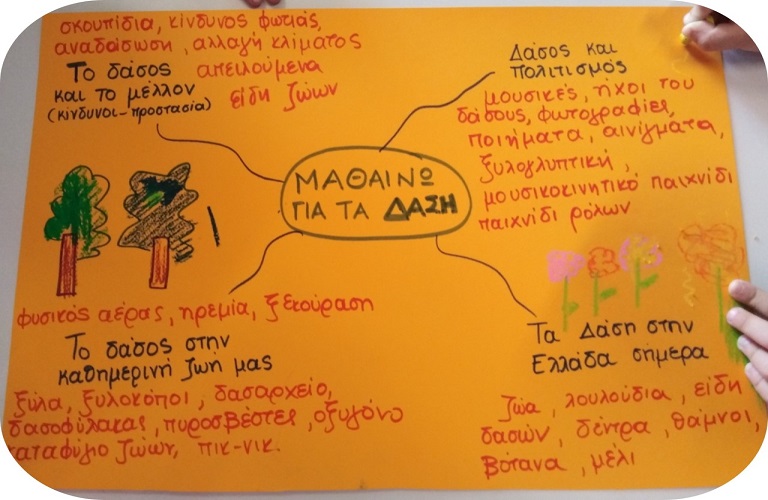 σκουπίδια, κίνδυνος φωτιάς,
αναδάσωση, αλλαγή κλίματος
Το δάσος απειλούμενα
και το μέλλον είδη ζώων
(κίνδυνοι-προστασία)
Δάσος και
πολιτισμός
μουσικές, ήχοι του
δάσους, φωτογραφίες,
ποιήματα, αινίγματα,
ξυλογλυπτική,
μουσικοκινητικό παιχνίδι
παιχνίδι ρόλων
ΜΑΘΑΙΝΩ
ΓΙΑ ΤΑ ΔΑΣΗ
φυσικός αέρας, ηρεμία, ξεκούραση
Το δάσος στην
καθημερινή ζωή μας
ξύλα, ξυλοκόποι, δασαρχείο,
δασοφύλακας, πυροσβέστες, οξυγόνο
καταφύγιο ζώων, πικ-νικ.
Τα Δάση στην
Ελλάδα σήμερα
ζώα, λουλούδια, είδη
δασών, δέντρα, θάμνοι,
βότανα, μέλι